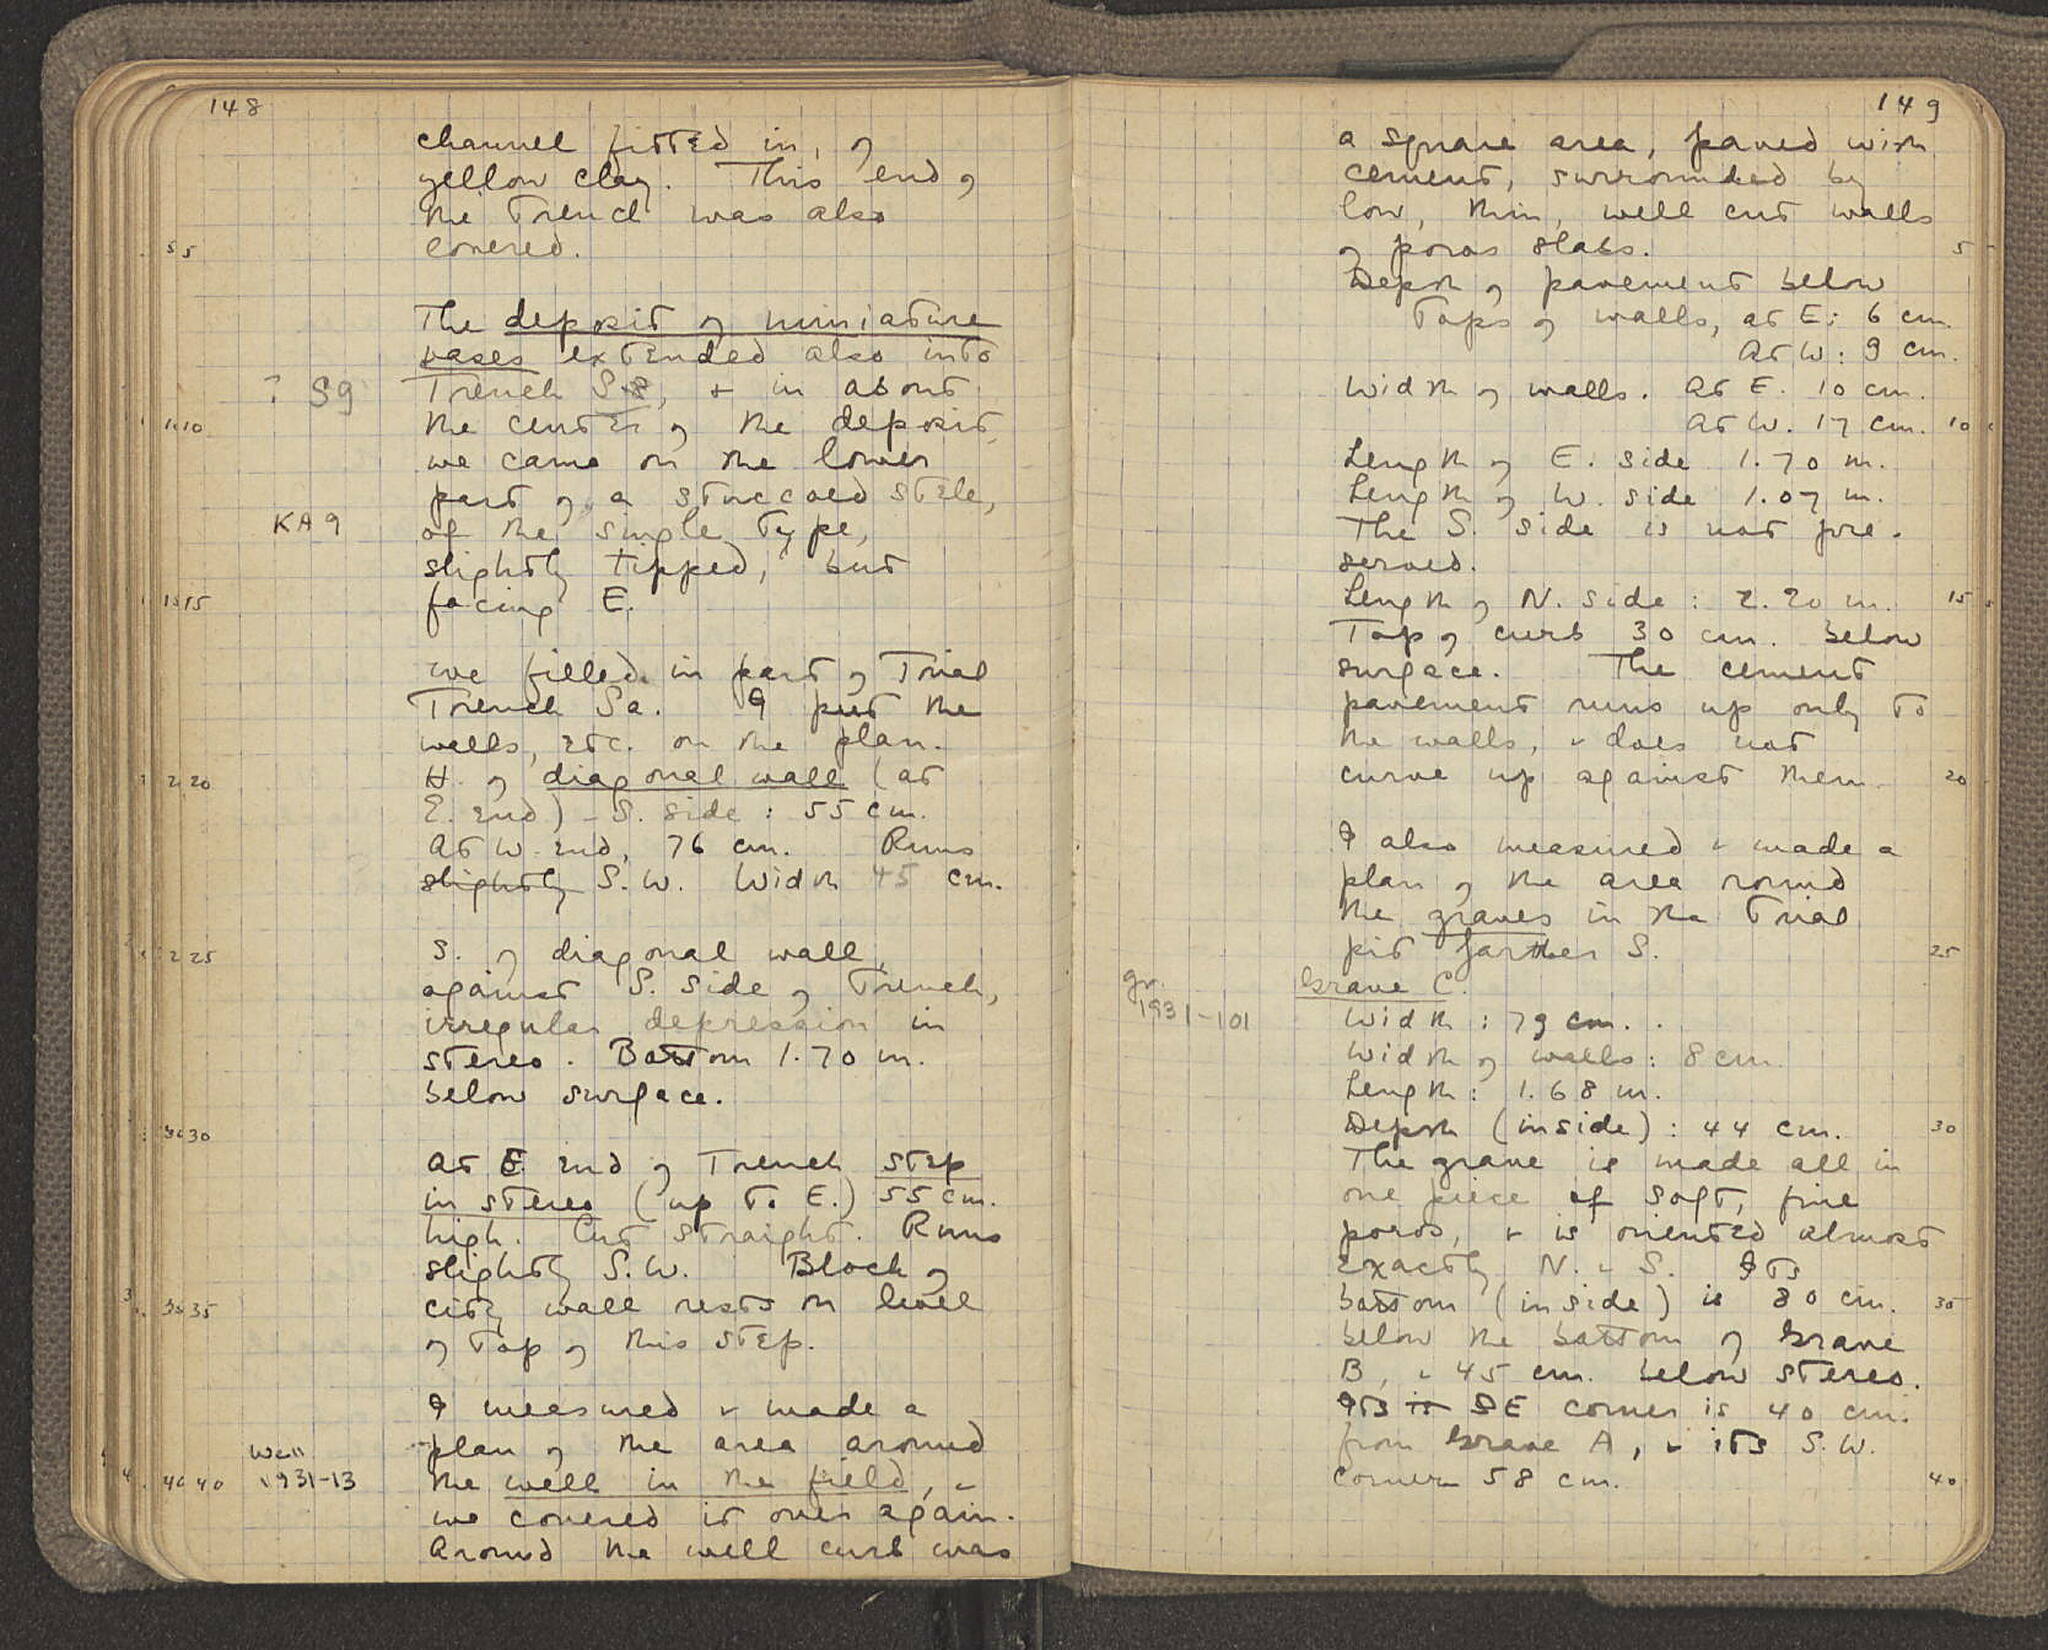 148
channel fitted in, of
yellow clay. This end of
the trench was also
5 covered.
The deposit of miniature
vases extended also into
? S9 Trench S8, + in about
10 the center of the deposit,
we came on the lower
part of a stuccoed stele,
KA9 of the single type,
slightly tipped, but
15 facing E.
We filled in part of Trial
Trench Sa. I put the
walls, etc. on the plan.
20 H. of diagonal wall (at
E. end) - S. side : 55 cm.
At W. end, 76 cm. Runs
slightly S.W. Width 45 cm.
25 S. of diagonal wall,
against S. side of Trench,
irregular depression in
stereo. Bottom 1.70 m.
below surface.
30
At E. end of Trench step
in stereo (up to E.) 55 cm.
high. Cut straight. Runs
slightly S.W. Block of
35 city wall rests on level
of top of this step.
I measured + made a
Well plan of the area around
1931-13 40 the well in the field, +
we covered it over again.
Around the well curb was
149
a square area, paved with
cement, surrounded by
low, thin, well cut walls
of poros slabs. 5
Depth of pavement below
Tops of walls, at E: 6 cm.
At W: 9 cm.
Width of walls. At E. 10 cm.
At W. 17 cm. 10
Length of E. side 1.70 m.
Length of W. side 1.07 m.
The S. side is not pre-
served.
Length of N. side : 2.20 m. 15
Top of curb 30 cm. below
surface. The cement
pavement runs up only to
the walls, + does not
curve up against them. 20
I also measured + made a
plan of the area round
the graves in the Trial
pit farther S. 25
gr. Grave C.
1931-101 Width : 79 cm.
Width of walls: 8 cm.
Length : 1.68 m.
Depth (inside) : 44 cm. 30
The grave is made all in
one piece of soft, fine
poros, + is oriented almost
exactly N. - S. Its
bottom (inside) is 80 cm. 35
below the bottom of Grave
B, + 45 cm. below stereo.
Its is SE corner is 40 cm.
from Grave A, + its S.W.
corner 58 cm. 40